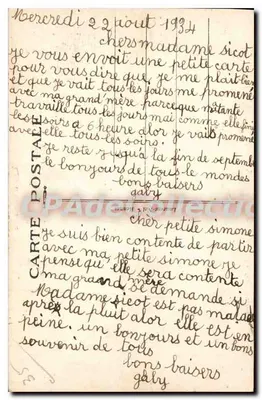 Mercredi 22 aout 1934
chers madame sicot
je vous envoit une petite carte
pour vous dire que je me plait bien
et que je vait tous les jours me promené
avec ma grand mère parceque matante
travaille tous les jours mais comme elle fini
les soirs a 6 heure alor je vais promené
avec elle tous les soirs.
je reste jusqu'a la fin de septembre
le bonjours de tous le mondes
bons baisers
gaby
CARTE POSTALE
cher petite simone
je suis bien contente de partir
avec ma petite simone je
pense qu'elle sera contente
ma grand mère
se demande si
Madame sicot est pas malade
après la pluit alor elle est en
peine, un bonjours et un bons
souvenir de tous
bons baisers
gaby
35